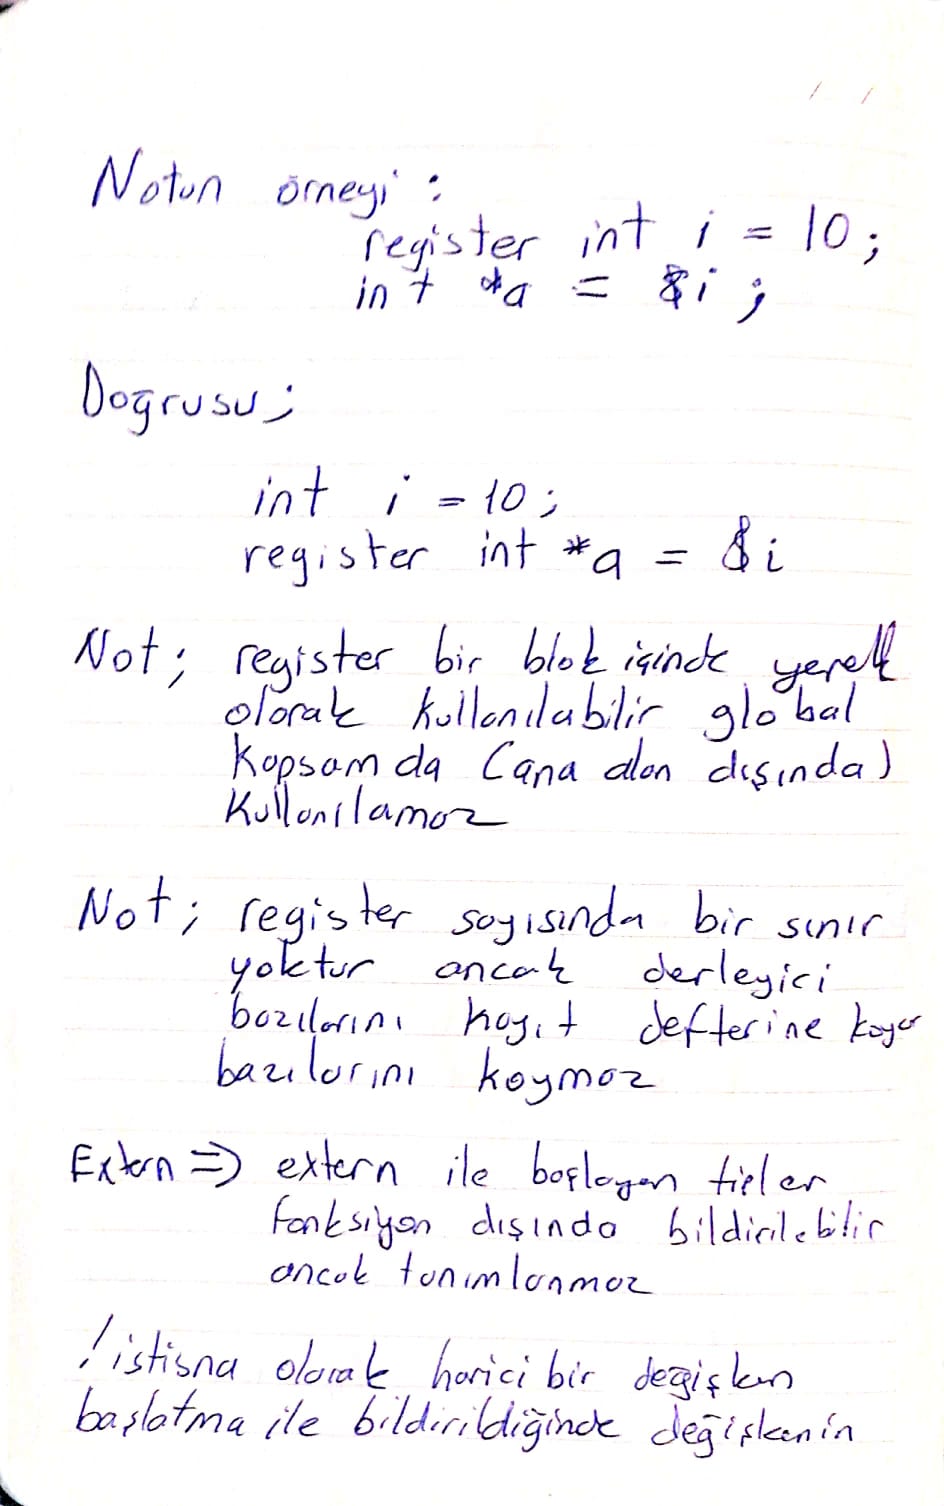 Notun örneyi :
register int i = 10;
int *a = &i ;
Doğrusu;
int i = 10;
register int *a = &i
Not; register bir blok içinde yerel
olarak kullanılabilir global
kapsamda (ana alan dışında)
kullanılamaz
Not; register sayısında bir sınır
yoktur ancak derleyici
bazılarını kayıt defterine koyar
bazılarını koymaz
Extern => extern ile başlayan tipler
fonksiyon dışında bildirilebilir
ancak tanımlanmaz
! istisna olarak harici bir değişken
başlatma ile bildirildiğinde değişkenin